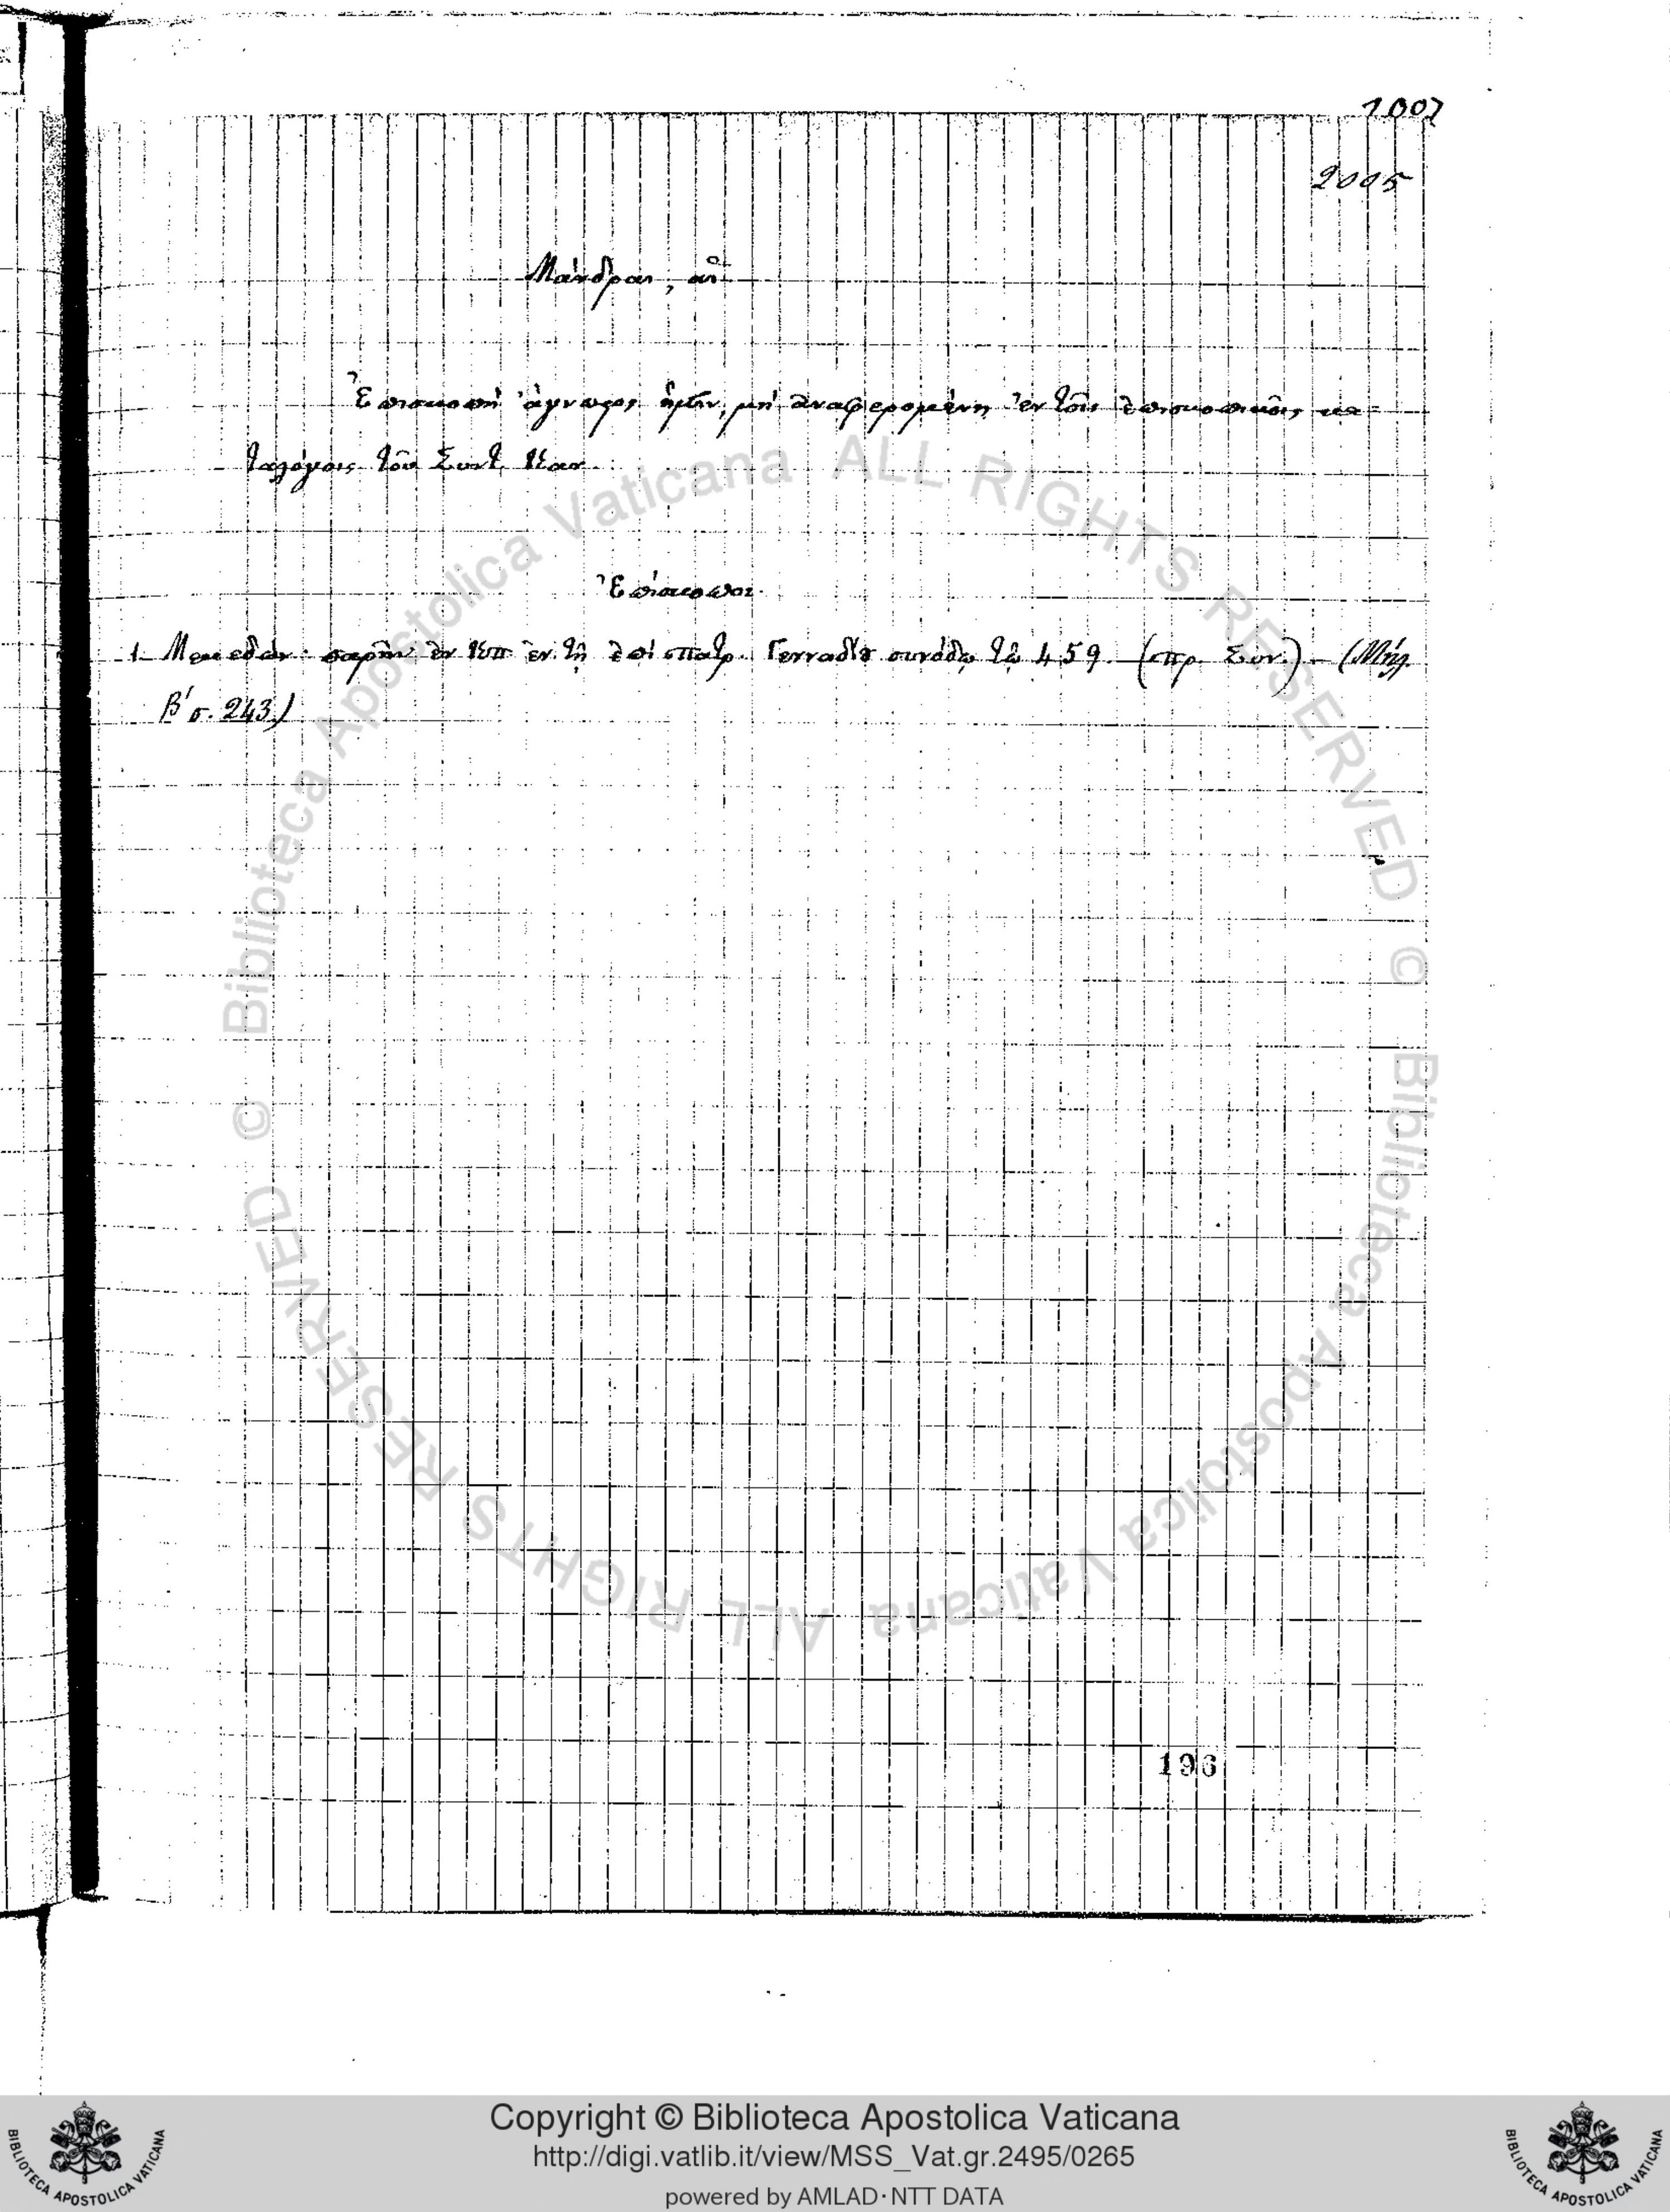 1002
2005
Μάνδραι, αἱ
Ἐπισκοπὴ ἄγνωστος ἡμῖν, μὴ ἀναφερομένη ἐν τοῖς ἐπισκοπικοῖς κα=
ταλόγοις τοῦ Συντ.
Ἐπίσκοποι.
1 παρῆν ἐν ΚΠ ἐν τῇ ἐπὶ πατρ. Γενναδίου συνόδῳ τῷ 459. (πρ. Συν.) - (Μήλ.
Β' σ. 243)
196
© Biblioteca Apostolica Vaticana ALL RIGHTS RESERVED
© Biblioteca Apostolica Vaticana ALL RIGHTS RESERVED
Copyright © Biblioteca Apostolica Vaticana
http://digi.vatlib.it/view/MSS_Vat.gr.2495/0265
powered by AMLAD·NTT DATA
BIBLIOTECA APOSTOLICA VATICANA
BIBLIOTECA APOSTOLICA VATICANA